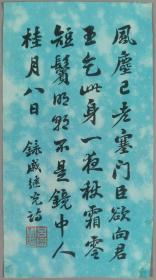 風塵已老塞门臣欲向君
王乞此身一夜秋霜零
短鬢明朝不是鏡中人
桂月八日 錄戚继光詩